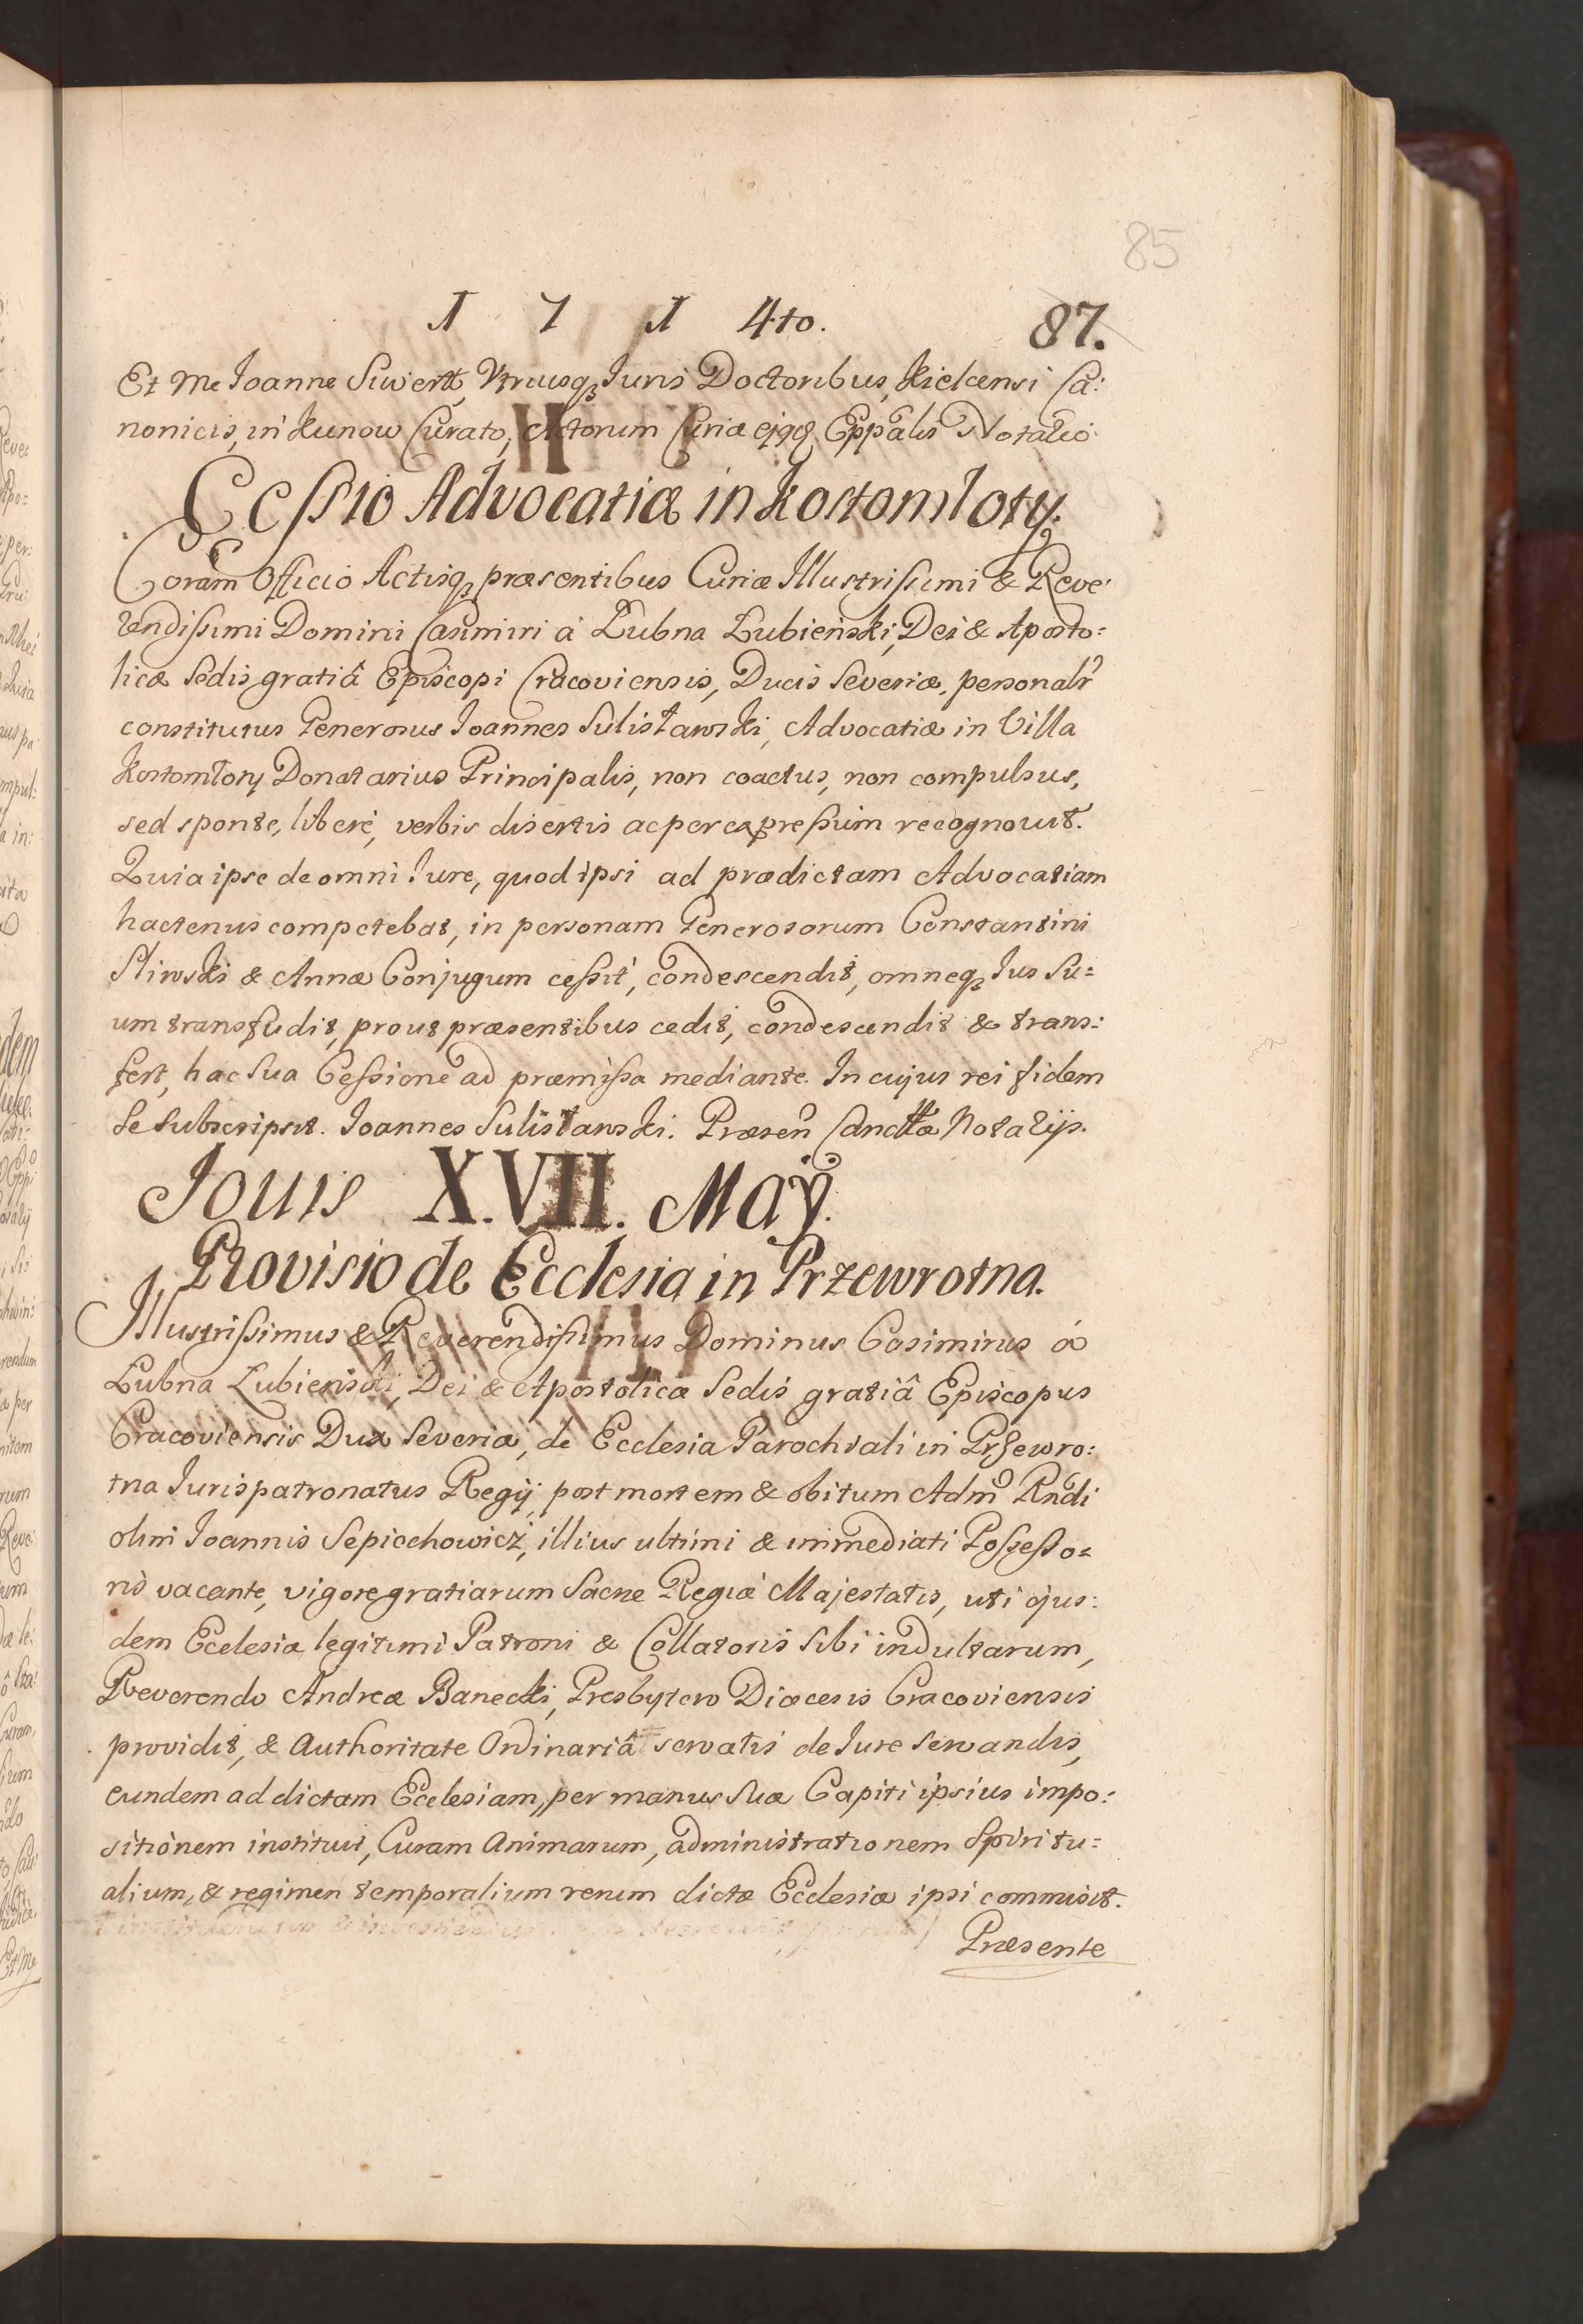 85
1 7 1 4to. 87.
Et Me Joanne Siwertt, Vtriusq3 Juris Doctoribus, Kielcensi Ca:
nonicis, in Kunow Curato, Actorum Curiæ ejqd Eppalis Notario
Cessio Advocatiæ in Kostomłoty.
Coram Officio Actisq3 præsentibus Curiæ Illustrissimi & Reve:
rendissimi Domini Casimiri à Łubna Łubieński, Dei & Aposto=
licæ Sedis gratiâ Episcopi Cracoviensis, Ducis Severiæ, personalr
constitutus Generosus Joannes Sulisławski, Advocatiæ in Villa
Kostomłoty Donatarius Principalis, non coactus, non compulsus,
sed sponte, liberè, verbis disertis ac per expressum recognovit.
Quia ipse de omni Jure, quod ipsi ad prædictam Advocatiam
hactenus competebat, in personam Generosorum Constantini
Sliwski & Annæ Conjugum cessit, condescendit, omneq3 Jus Su=
um transfudit, prout præsentibus cedit, condescendit & trans:
fert, hac Sua Cessione ad præmissa mediante. In cujus rei fidem
Se Subscripsit. Joannes Sulisławski. Præsen Notarijs.
Jouis XVII. Maÿ.
Provisio de Ecclesia in Przewrotna.
Illustrissimus & Reverendissimus Dominus Casimirus à
Łubna Łubieński, Dei & Apostolicæ Sedis gratiâ Episcopus
Cracoviensis Dux Severiæ, de Ecclesia Parochiali in Przewro:
tna Jurispatronatus Regij, post mortem & obitum Adm Rndi
olim Joannis Sepiechowicz, illius ultimi & immediati Possesso=
ris vacante, vigore gratiarum Sacræ Regiæ Majestatis, uti ejus:
dem Ecclesiæ legitimi Patroni & Collatoris Sibi indultarum,
Reverendo Andreæ Banecki, Presbytero Diæcesis Cracoviensis
providit, & Authoritate Ordinariâ servatis de Jure servandis,
eundem ad dictam Ecclesiam, per manus Suæ Capiti ipsius impo:
sitionem instituit, Curam Animarum, administrationem Spiritu=
alium, & regimen temporalium rerum dictæ Ecclesiæ ipsi commisit.
Præsente